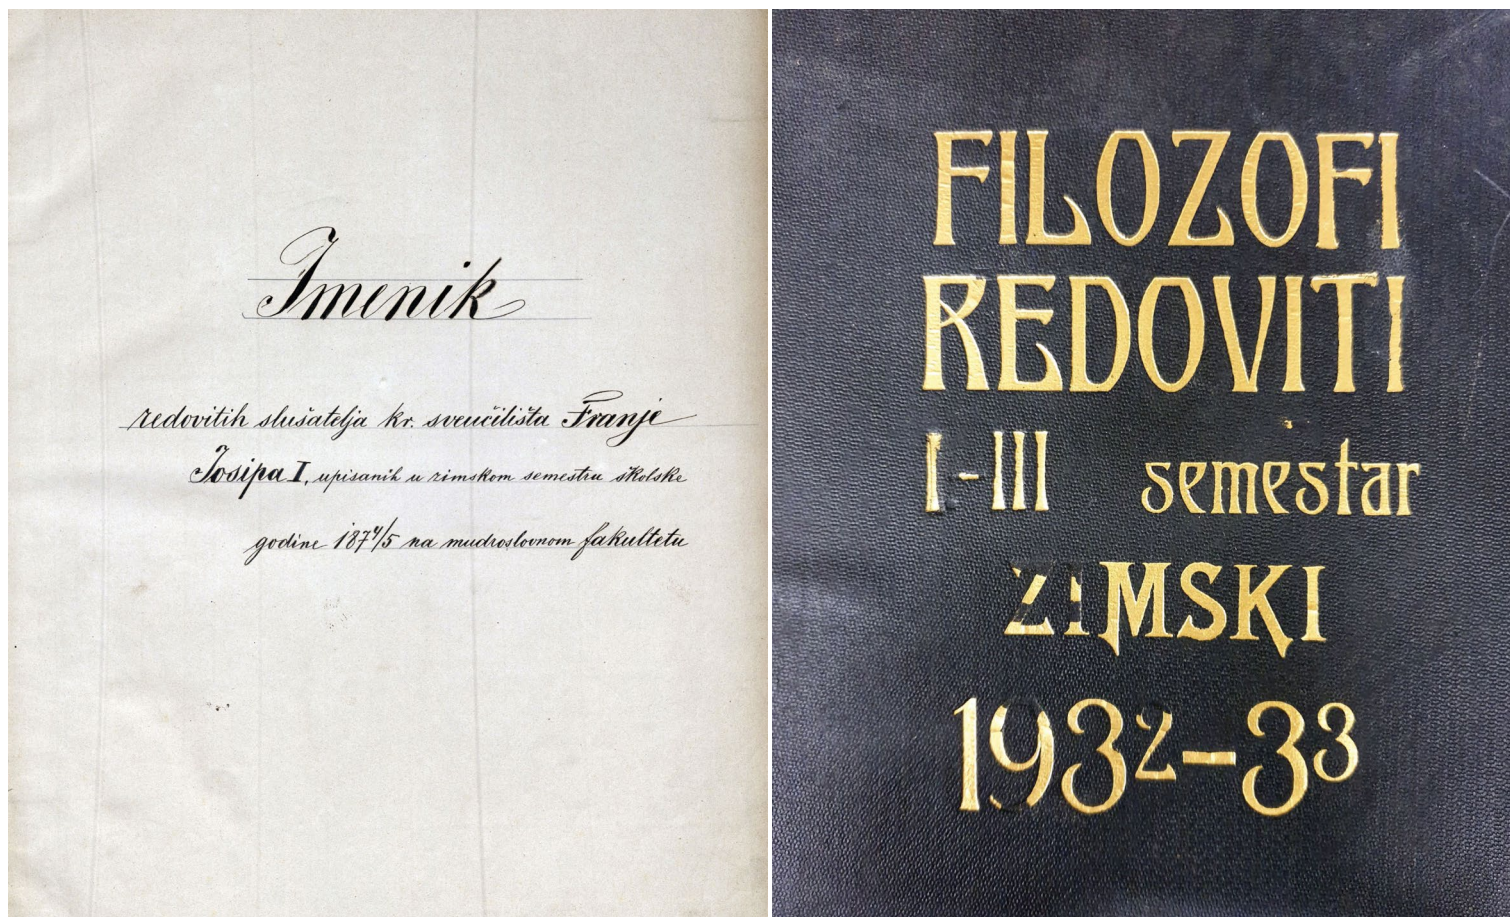 Imenik
redovitih slušatelja kr. sveučilišta Franje
Josipa I, upisanih u zimskom semestru školske
godine 1874/5 na mudroslovnom fakultetu
FILOZOFI
REDOVITI
I-III semestar
ZIMSKI
1932-33